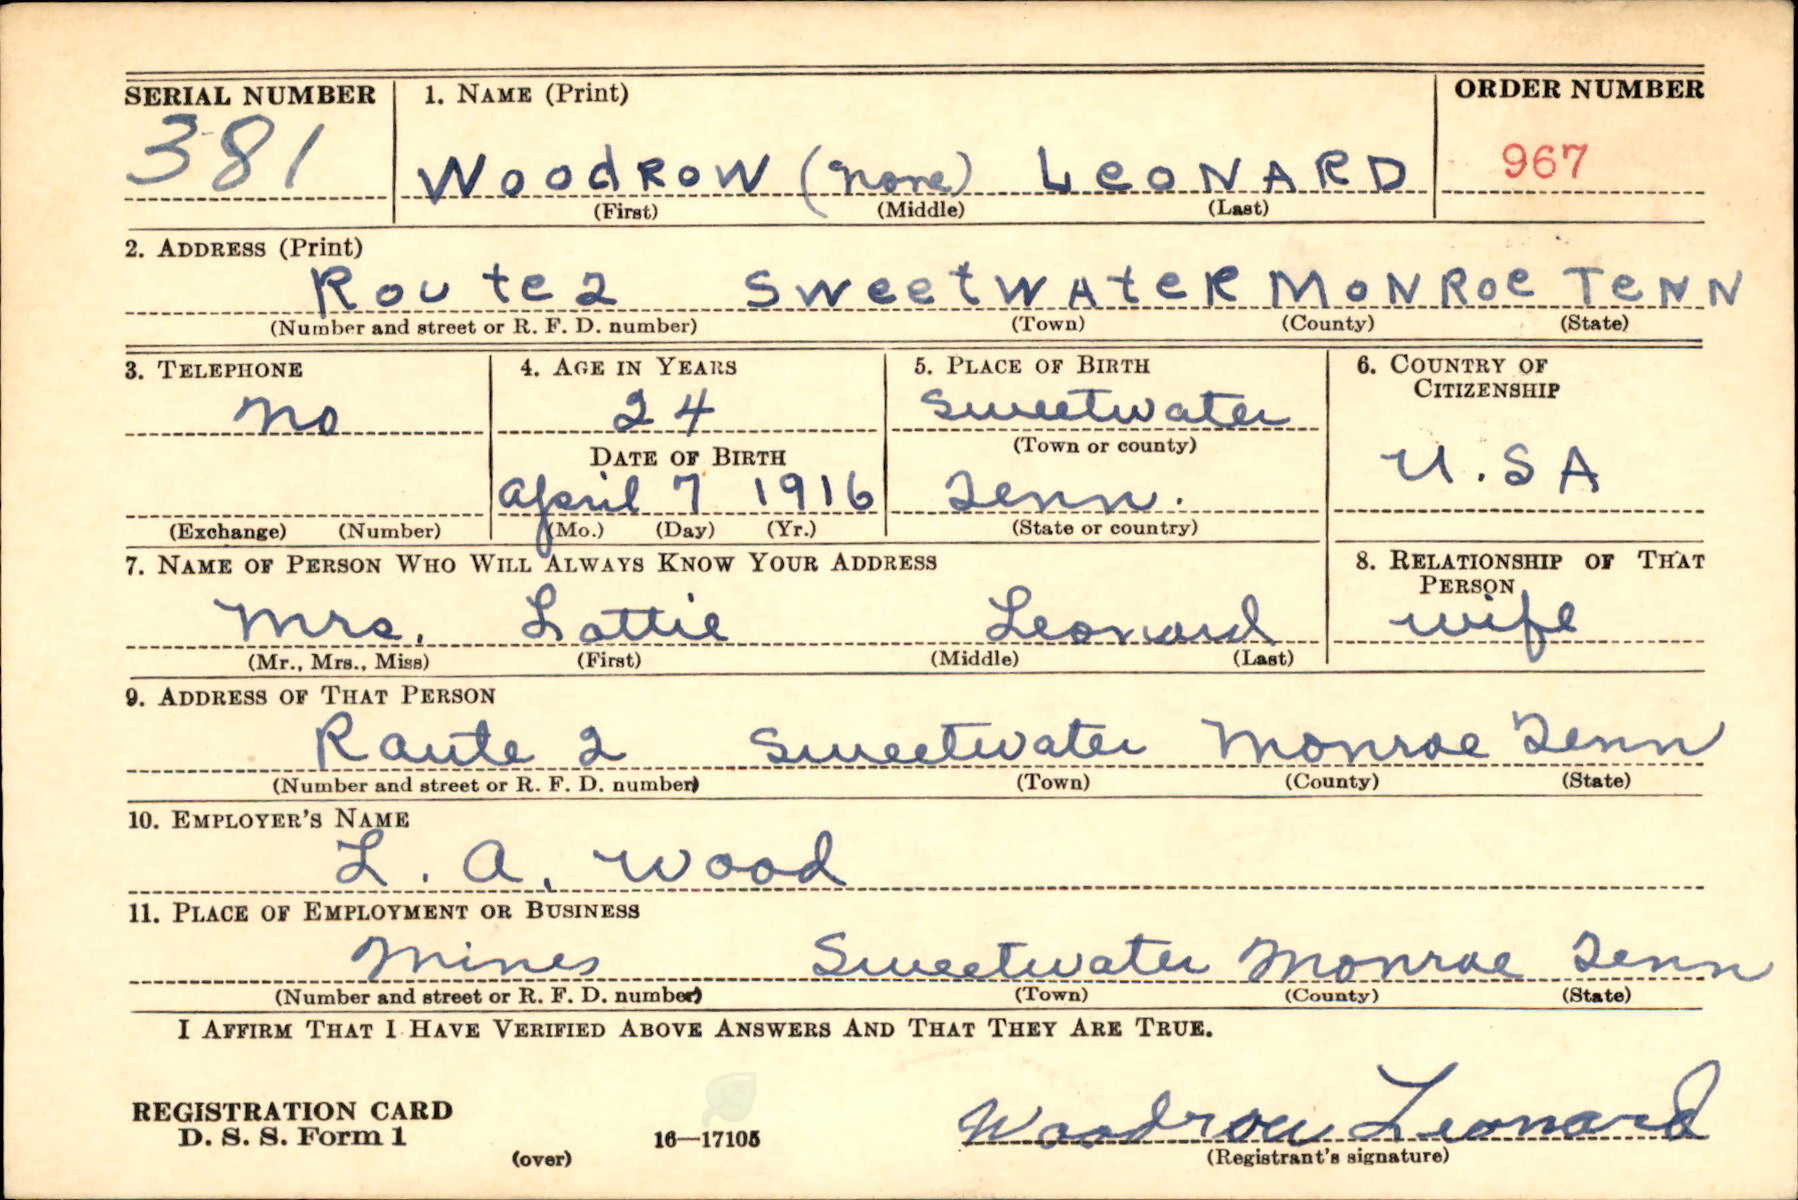 SERIAL NUMBER 1. NAME (Print) ORDER NUMBER
381 WOOdROW (none) LeONARD 967
(First) (Middle) (Last)
2. ADDRESS (Print)
Route 2 SweetwAteR MONRoe TeNN
(Number and street or R. F. D. number) (Town) (County) (State)
3. TELEPHONE 4. AGE IN YEARS 5. PLACE OF BIRTH 6. COUNTRY OF CITIZENSHIP
no 24 Sweetwater
DATE OF BIRTH (Town or county) U.SA
April 7 1916 Tenn.
(Exchange) (Number) (Mo.) (Day) (Yr.) (State or country)
7. NAME OF PERSON WHO WILL ALWAYS KNOW YOUR ADDRESS 8. RELATIONSHIP OF THAT PERSON
Mrs. Lottie Leonard wife
(Mr., Mrs., Miss) (First) (Middle) (Last)
9. ADDRESS OF THAT PERSON
Route 2 Sweetwater Monroe Tenn
(Number and street or R. F. D. number) (Town) (County) (State)
10. EMPLOYER'S NAME
L. A. Wood
11. PLACE OF EMPLOYMENT OR BUSINESS
Mines Sweetwater Monroe Tenn
(Number and street or R. F. D. number) (Town) (County) (State)
I AFFIRM THAT I HAVE VERIFIED ABOVE ANSWERS AND THAT THEY ARE TRUE.
REGISTRATION CARD
D. S. S. Form 1 16—17105 Woodrow Leonard
(over) (Registrant's signature)